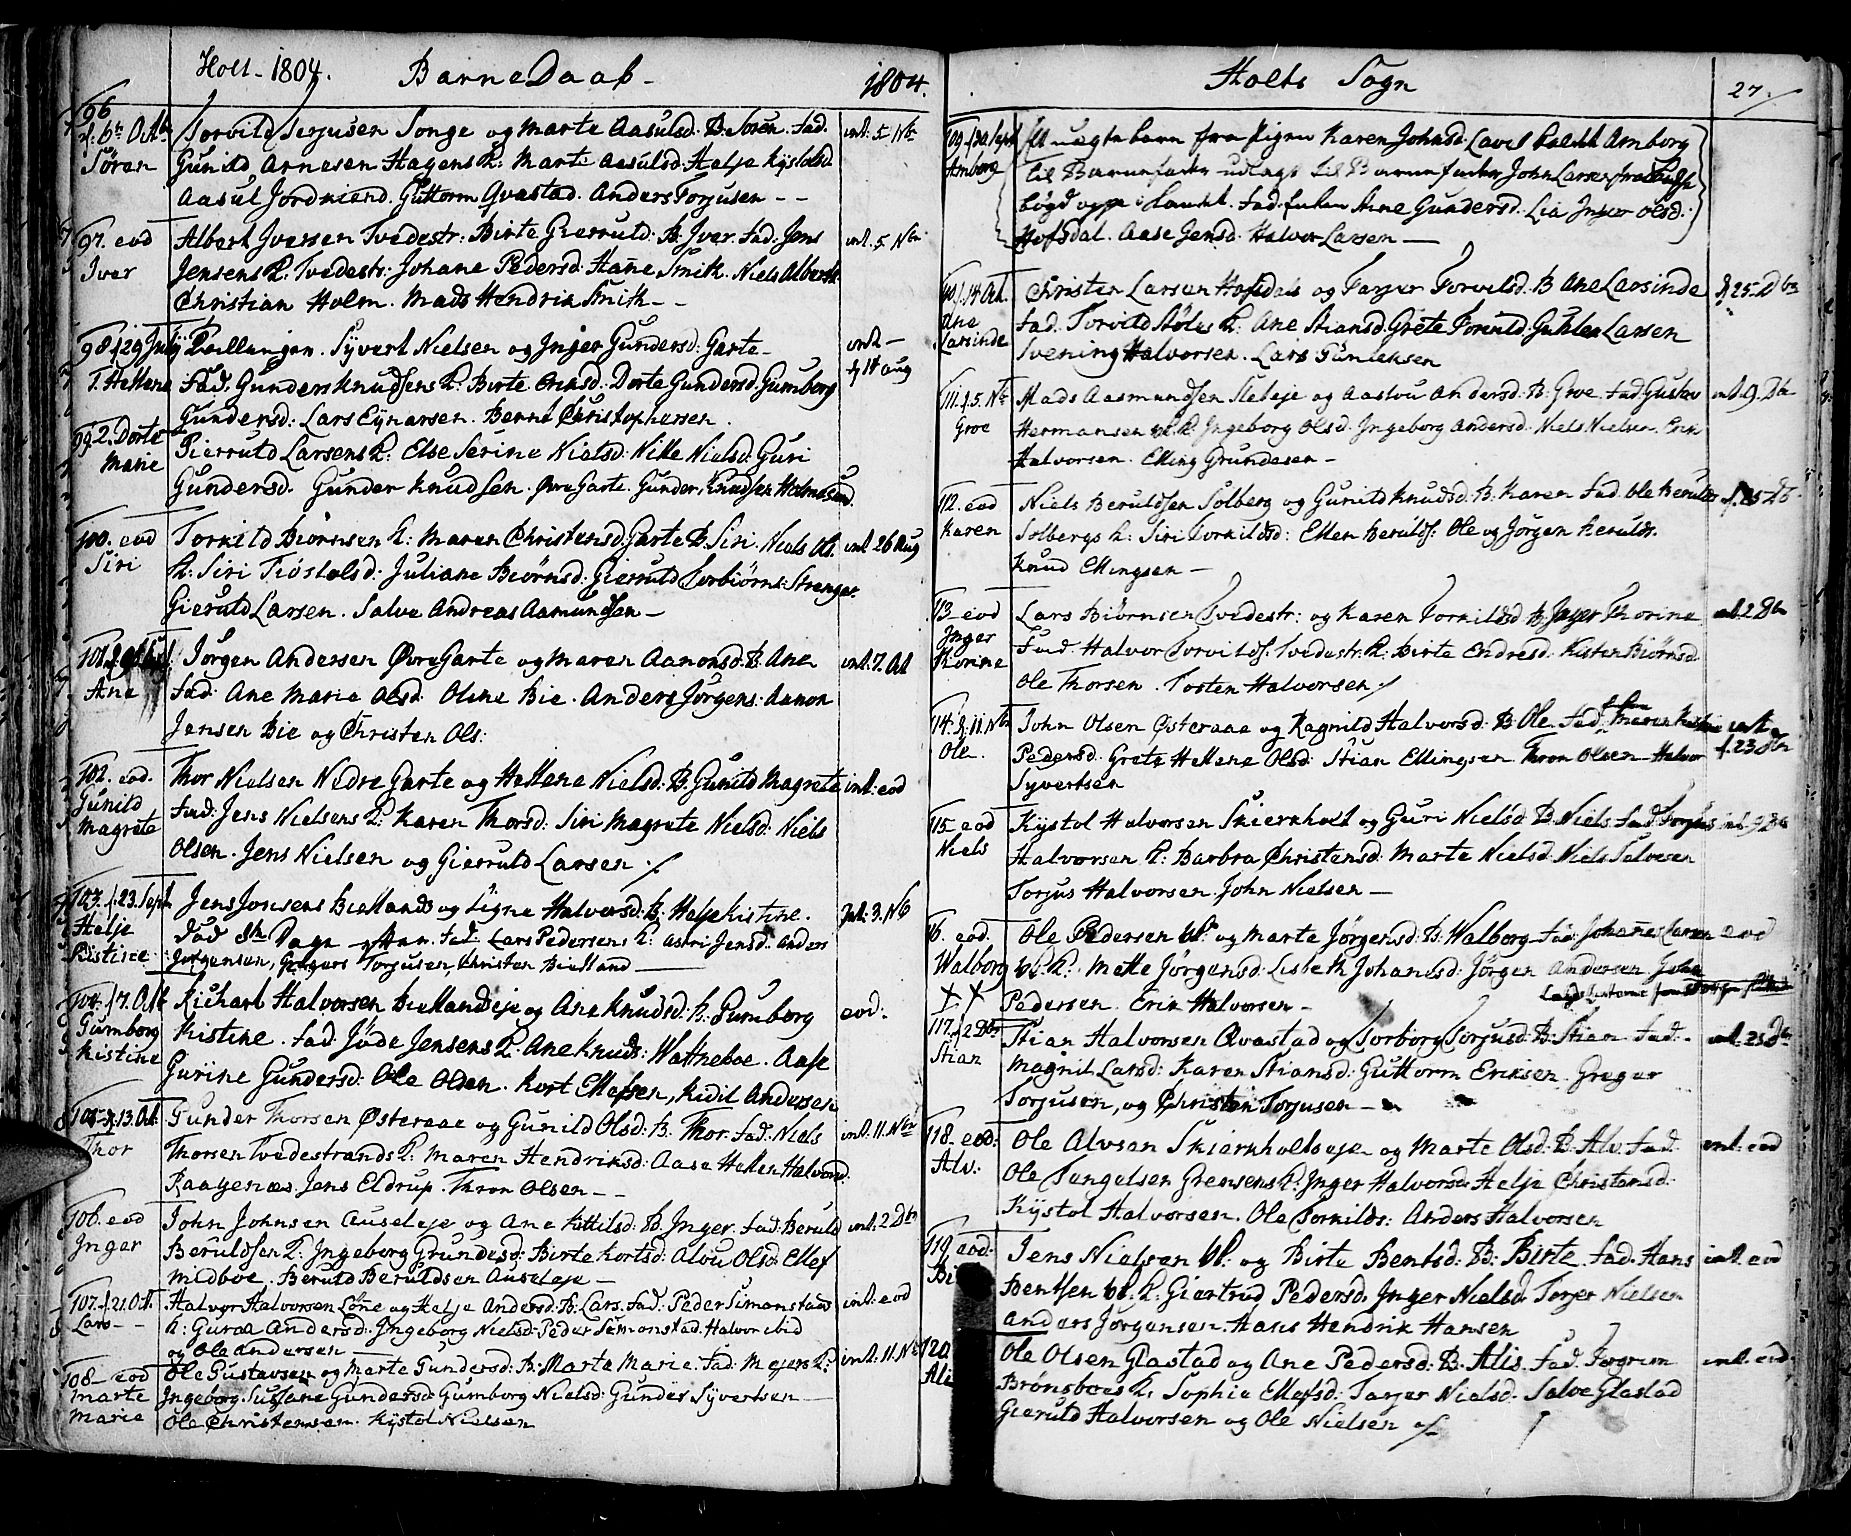 Holt - 1804. BarneDaab - 1804.
96
Torvild Terjusen Songe og Marte Aasulsd: B. Søren. Fad.
Søren Gunild Arnesen Hagens K: Marte Aasulsd: Helje Kystolsd
Aasul Guttorm Qvastad. Anders Torjusen - -
int. 5. Nbr
97. eod Albert Iversen Tvedestr: Birte Gierruld: B. Iver. Fad. Jens
Iver Jensens K. Tvedestr: Johane Pedersd: Hanne Smith. Niels Albertsen
Christian Holm. Mads Hendrik Smith - -
int. 5. Nbr
98. f 29 July Tvillinger. Syvert Nielsen og Inger Gundersd: Garte
1. Hellene Fad. Gunder Knudsens K. Birte Eriksd: Dorte Gundersd. Gumborg
Gundersd: Lars Eynarsen. Bernt Christophersen.
14 aug
99. 2. Dorte Gierruld Larsens K: Else Serine Nielsd: Nille Nielsd: Guri
Marie Gundersd. Gunder Knudsen. Øvre Garte. Gunder Knudsen
100. eod Torkild Biørnsen K: Maren Christensd. Garte B. Siri. Niels Ols.
Siri K: Siri Tiøstolsd: Juliane Biørnsd: Gierruld Torbiørns: Strenger.
Gieruld Larsen. Salve Andreas Aamundsen -
int. 26 Aug
101. Jørgen Andersen Øvre Garte og Maren Aanonsd: B. Ane
Ane Fad: Ane Marie Olsd. Oline Bie. Anders Jørgens: Aanon
Jensen Bie og Christen Ols:
int. 7. Oct
102. eod. Thor Nielsen Nedre Garte og Hellene Nielsd: B. Gunild Magrete int: eod
Gunild Fad: Jens Nielsens K: Karen Thorsd: Siri Magrete Nielsd: Niels
Magrete Olsen. Jens Nielsen og Gierruld Larsen ./
103. f. 23. Sept Jens Jensens Biellands og Signe Halvorsd: B. Helje Kistine.
Helje Fad: Lars Pedersens K: Aasri Jensd. Anders
Kistine Jørgensen, Gregers Torjusen, Christen Bielland
int. 3. Nb
104. f 7. Oct Richart Halvorsen Biellandseje og Ane Knudsd. B. Gumborg
Gumborg Kistine. Fad: Jøde Jensens K. Ane Knuds: Watneboe. Aase
Kistine Gurine Gundersd: Ole Olsen. Kort Ellefsen, Kidil Andersen
eod.
105. f. 13. Oct Gunder Thorsen Østeraae og Gunild Olsd: B. Thor. Fad. Niels
Thor Thorsen Tvedestrands K: Maren Hendriksd: Aase Hellen Halvorsd.
Raagenæs. Jens Eldrup. Thron Olsen - -
int. 11. Nbr
106. eod John Johnsen Auseleje og Ane Kittilsd: B. Inger. Fad: Beruld
Inger Beruldsen K: Ingeborg Grundesd: Birte Kortsd: Alou Olsd: Ellef
Midboe. Beruld Beruldsen Auseleje -
int. 2 Dbr
107. f. 21. Oct Halvor Halvorsen Lone og Helje Andersd: B. Lars. Fad: Peder Simonstads
Lars K: Guroe Andersd: Ingeborg Nielsd: Peder Simonstad. Halvor ibid
og Ole Andersen
int: eod
108. eod Ole Gustavsen og Marte Gundersd: B: Marte Marie: Fad: Mejers K:
Marte Ingeborg. Susane Gundersd: Gumborg Nielsd: Gunder Syvertsen
Marie Ole Christensen. Kystol Nielsen
int. 11. Nbr
Holts Sogn 27./
109. f 30 Sept Et uægte barn fra Pigen Karen Johnsd. Lavel kaldt Amborg
Amborg til Barnefader udlagt til Barnefader John Larsen
oppe i Landet. Fad. Enken Anne Gundersd. Lia Inger Olsd.
Hofsdal. Aase Jensd. Halvor Larsen
110. f. 14 Oct. Christen Larsen Hofsdal og Tarjer Torvilsd. B Ane Larsinde
Ane Fad. Torvild Støles K: Ane Stiansd: Grete Gunlex Larsen
Larsinde Svening Halvorsen. Lars Gunleksen
f 25. Dbr
111. f. 5. Nbr Mads Aasmundsen og Aaslou Andersd. B. Groe. Fad Gustav
Groe Hermansen K. Ingeborg Olsd. Ingeborg Andersd. Niels Nielsen. Erik
Halvorsen. Elling Grundesen -
int. 9. Dbr
112. eod Niels Beruldsen Solberg og Gunild Knudsd. B. Karen. Fad. Ole Beruldsen
Karen Solbergs K: Siri Torkildsd: Ellen Berulds: Ole og Jørgen Berulds.
Knud Ellingsen -
113. eod Lars Biørnsen Tvedestr: og Karen Torkildsd B. Inger Thorine
Inger Fad. Halvor Torvilds. Tvedestr. K: Birte Endresd. Kisten Biørnsd.
Thorine Ole Thorsen. Tosten Halvorsen ./
int. 2 Dbr
114. f. 11. Nbr John Olsen Østeraae og Ragnild Halvorsd. B. Ole. Fad. Maren
Ole. Pedersd. Grete Hellene Olsd. Stian Ellingsen Thron Olsen Halvor
Syvertsen
f. 23. Dbr
115. eod Kystol Halvorsen Skierkholt og Guri Nielsd B. Niels. Fad. Torjus
Niels Halvorsen K: Barbra Christensd: Marte Nielsd: Niels Salvesen
Torjus Halvorsen. John Nielsen -
int. 9 Dbr
16. eod. Ole Pedersen og Marte Jørgensd: B: Walborg Fad: Johannes Larsen eod
Walborg K: Mette Jørgensd: Lisbeth Johansd: Jørgen Andersen John
Pedersen. Erik Halvorsen -
117. f 2 Dbr Stian Halvorsen Qvastad og Torborg Torjusd: B: Stian. Fad:
Stian Magnil Larsd: Karen Stiansd: Guttorm Eriksen. Greger
Torjusen, og Christen Torjusen -
118. eod: Ole Alvsen Skierkholtseje og Marte Olsd: B: Alv. Fad:
Alv. Ole Tengelsen Grensens K. Inger Halvorsd: Helje Christensd.
Kystol Halvorsen. Ole Torkilds: Anders Halvorsen
int. eod
119 eod. Jens Nielsen og Birte Bentsd: B: Birte. Fad. Hans
Bi Bentsen K: Giertrud Pedersd. Inger Nielsd. Torjer Nielsen
Anders Jørgensen. Hans Hendrik Hansen
int. eod
120 Ole Olsen Glastad og Ane Pedersd: B. Alis. Fad. Jorgrim
Ali Brønsboes K. Sophie Ellefsd: Tarjer Nielsd. Salve Glastad
Gieruld Halvorsen og Ole Nielsen
int. eod